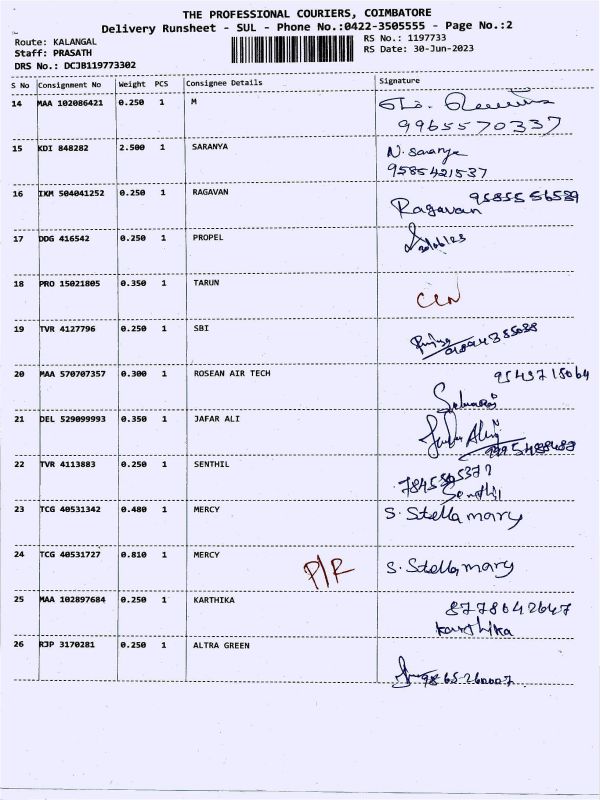 THE PROFESSIONAL COURIERS, COIMBATORE
Delivery Runsheet - SUL - Phone No.:0422-3505555 - Page No.:2
Route: KALANGAL
RS No.: 1197733
Staff: PRASATH
RS Date: 30-Jun-2023
DRS No.: DCJB119773302
S No Consignment No Weight PCS Consignee Details Signature
14 MAA 102086421 0.250 1 M
9965570337
15 KDI 848282 2.500 1 SARANYA N. Saranya
9585421537
16 IKM 504041252 0.250 1 RAGAVAN Ragavan 9585556539
17 DDG 416542 0.250 1 PROPEL 30/06/23
18 PRO 15021805 0.350 1 TARUN
19 TVR 4127796 0.250 1 SBI
20 MAA 570707357 0.300 1 ROSEAN AIR TECH
21 DEL 529099993 0.350 1 JAFAR ALI Jafar Ali
22 TVR 4113883 0.250 1 SENTHIL
Senthil
23 TCG 40531342 0.480 1 MERCY S. Stella mary
24 TCG 40531727 0.810 1 MERCY P/R S. Stella mary
25 MAA 102897684 0.250 1 KARTHIKA 8778642647
karthika
26 RJP 3170281 0.250 1 ALTRA GREEN
9865260007